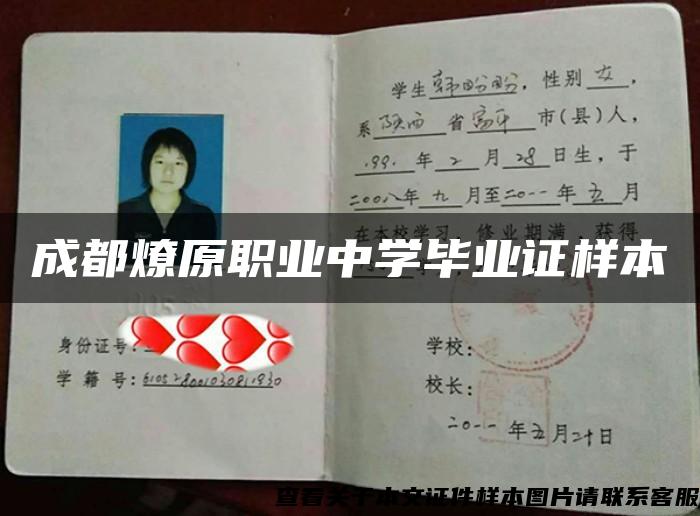 学生韩盼盼，性别女，
系陕西省富平市(县)人，
1991年2月28日生，于
二00八年九月至二0一一年五月
在本校学习，修业期满，获得
成都燎原职业中学毕业证样本
身份证号：
学籍号：610528001030811930
学校：
校长：
二0一一年五月二十日
查看关于本文证件样本图片请联系客服